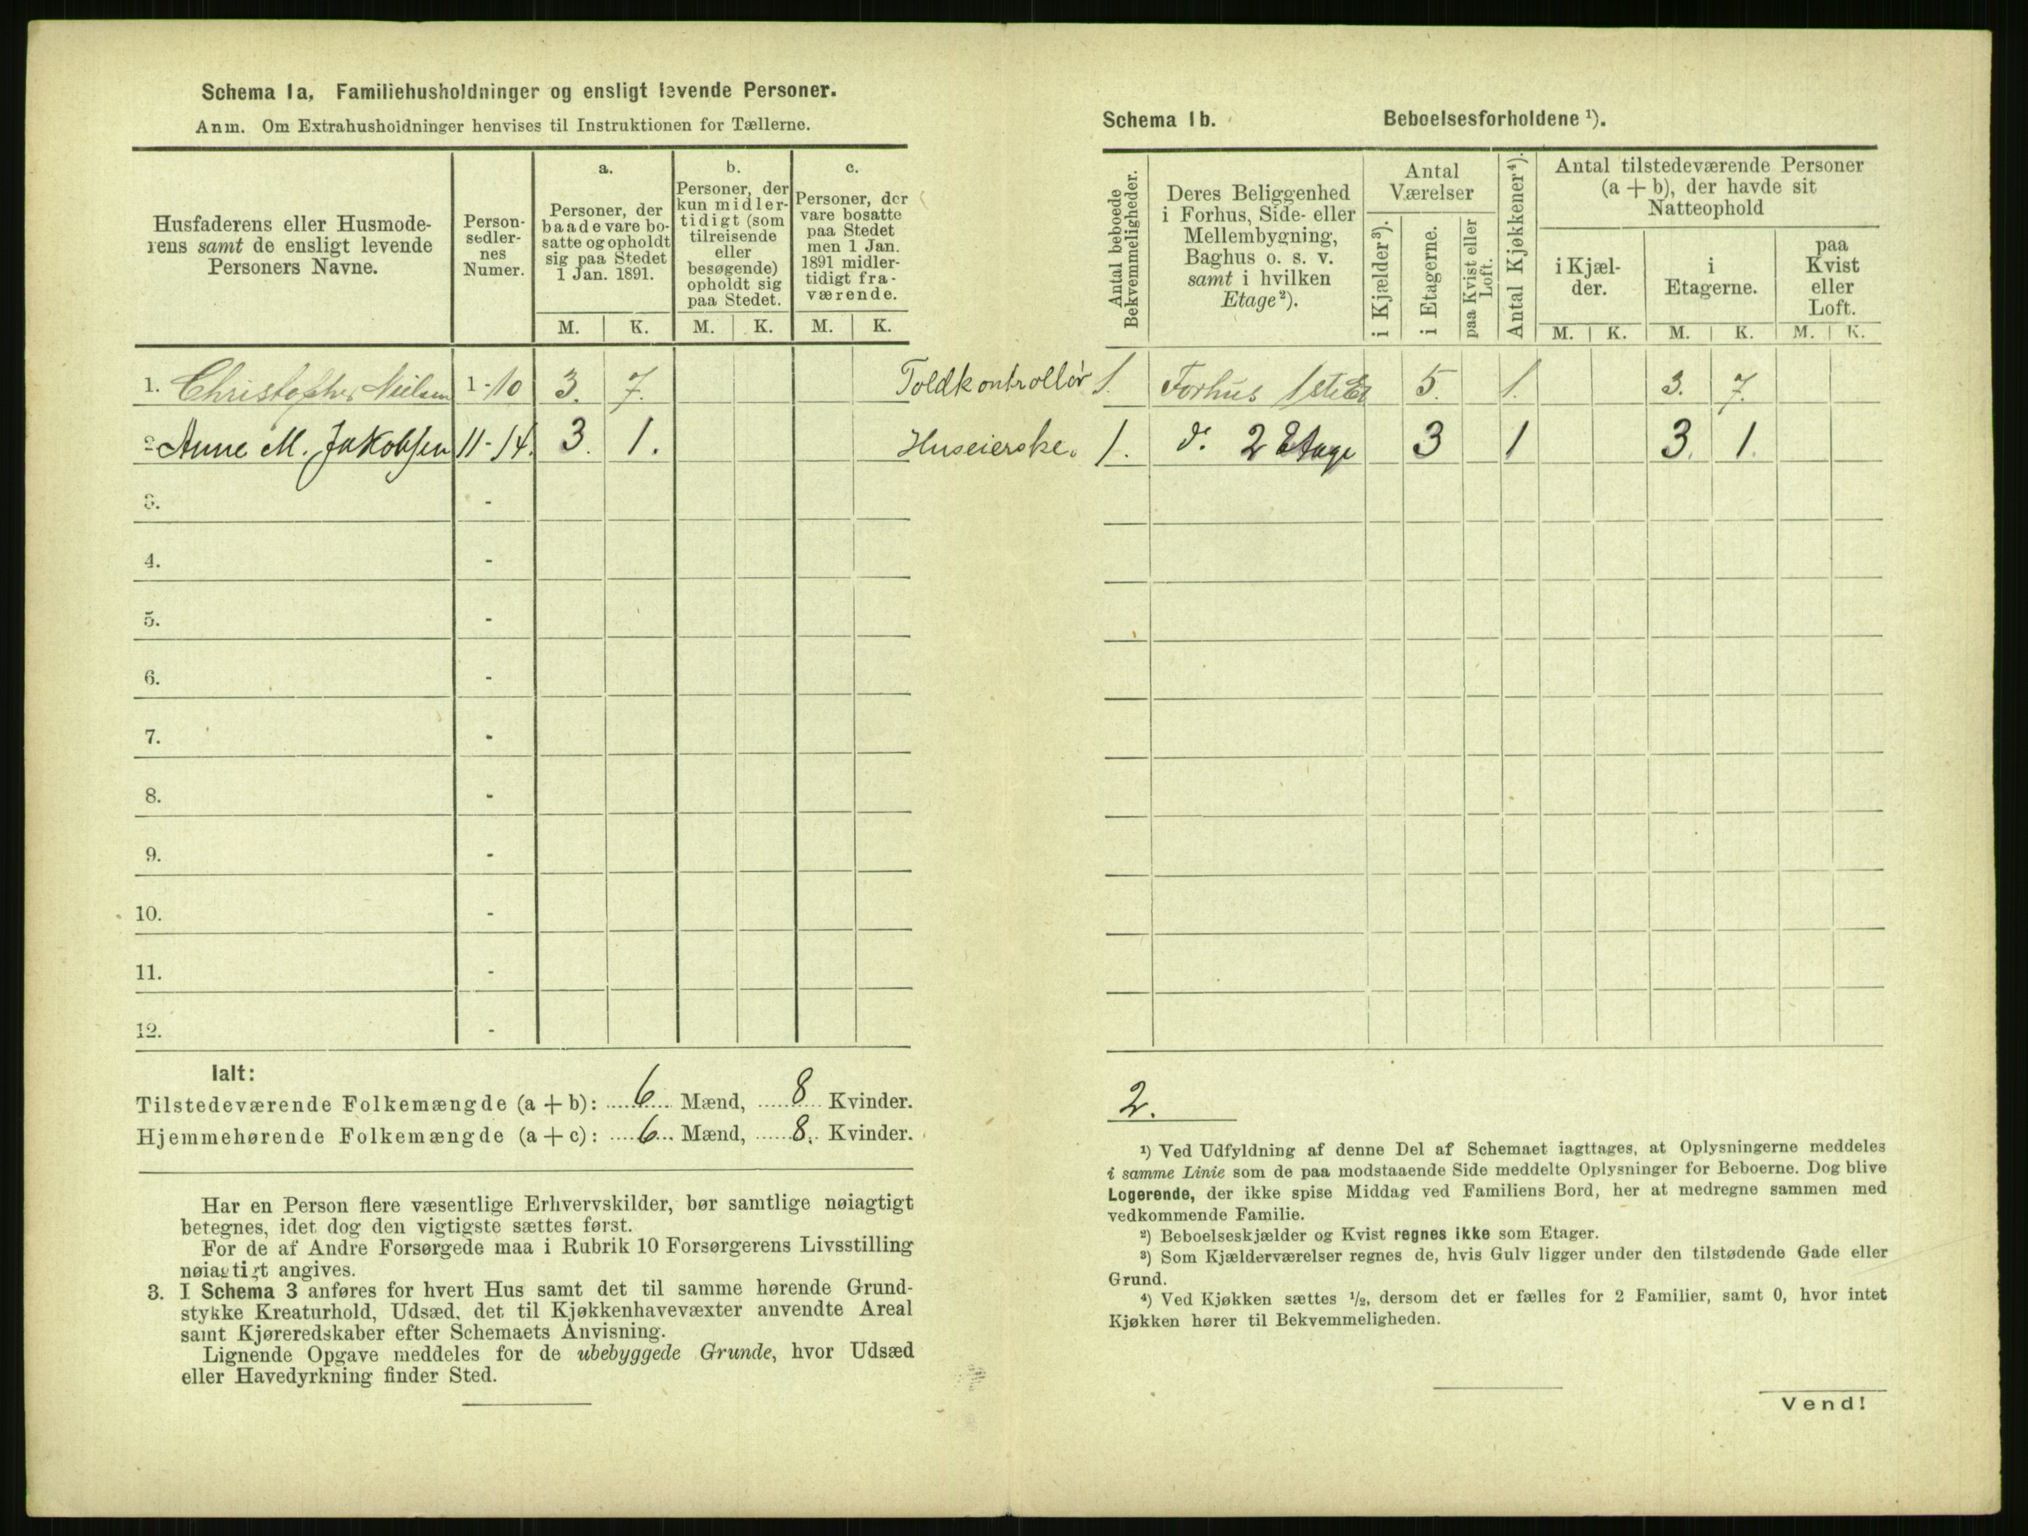 Schema 1a, Familiehusholdninger og ensligt levende Personer.
Anm. Om Extrahusholdninger henvises til Instruktionen for Tællerne.
Husfaderens eller Husmode-
rens samt de ensligt levende
Personers Navne.
Person-
sedler-
nes
Numer.
a.
Personer, der
baade vare bo-
satte og opholdt
sig paa Stedet
1 Jan. 1891.
b.
Personer, der
kun midler-
tidigt (som
tilreisende
eller
besøgende)
opholdt sig
paa Stedet.
c.
Personer, der
vare bosatte
paa Stedet
men 1 Jan.
1891 midler-
tidigt fra-
værende.
M. K. M. K. M. K.
1. Christopher Nielsen 1-10 3. 7. Toldkontrollør
2 Anne M. Jakobsen 11-14. 3. 1. Huseierske.
3. -
4. -
5. -
6. -
7. -
8. -
9. -
10. -
11. -
12. -
Ialt:
Tilstedeværende Folkemængde (a + b): 6 Mænd, 8 Kvinder.
Hjemmehørende Folkemængde (a + c): 6 Mænd, 8. Kvinder.
Har en Person flere væsentlige Erhvervskilder, bør samtlige nøiagtigt
betegnes, idet dog den vigtigste sættes først.
For de af Andre Forsørgede maa i Rubrik 10 Forsørgerens Livsstilling
nøiagtigt angives.
3. I Schema 3 anføres for hvert Hus samt det til samme hørende Grund-
stykke Kreaturhold, Udsæd, det til Kjøkkenhavevæxter anvendte Areal
samt Kjøreredskaber efter Schemaets Anvisning.
Lignende Opgave meddeles for de ubebyggede Grunde, hvor Udsæd
eller Havedyrkning finder Sted.
Schema 1b. Beboelsesforholdene ¹).
Antal beboede
Bekvemmeligheder.
Deres Beliggenhed
i Forhus, Side- eller
Mellembygning,
Baghus o. s. v.
samt i hvilken
Etage²).
Antal
Værelser
i Kjælder³).
i Etagerne.
paa Kvist eller
Loft.
Antal Kjøkkener⁴).
Antal tilstedeværende Personer
(a + b), der havde sit
Natteophold
i Kjæl-
der.
i
Etagerne.
paa
Kvist
eller
Loft.
M. K. M. K. M. K.
1. Forhus 1ste Et 5. 1. 3. 7.
1. do 2 Etage 3 1 3. 1.
2.
¹) Ved Udfyldning af denne Del af Schemaet iagttages, at Oplysningerne meddeles
i samme Linie som de paa modstaaende Side meddelte Oplysninger for Beboerne. Dog blive
Logerende, der ikke spise Middag ved Familiens Bord, her at medregne sammen med
vedkommende Familie.
²) Beboelseskjælder og Kvist regnes ikke som Etager.
³) Som Kjælderværelser regnes de, hvis Gulv ligger under den tilstødende Gade eller
Grund.
⁴) Ved Kjøkken sættes ½, dersom det er fælles for 2 Familier, samt 0, hvor intet
Kjøkken hører til Bekvemmeligheden.
Vend!